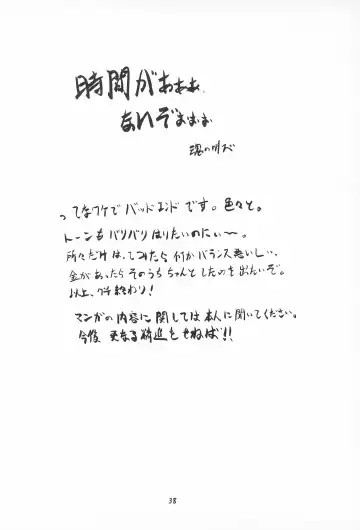 時間がぁぁぁ
ないぞぉぉぉ
魂の叫び
ってなワケでバッドエンドです。色々と。
トーンもバリバリはりたいのにぃ〜。
所々だけはってみたら何かバランス悪いしぃ、
金があったらそのうちちゃんとしたのを出たいぞ。
以上、グチ終わり!
マンガの内容に関しては本人に聞いてください。
今後 更なる精進をせねば!!
38